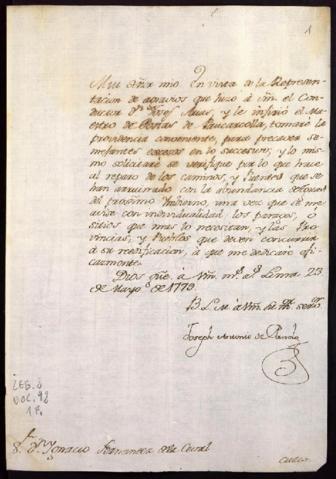 1
Muy Señor mio. En vista de la Represen-
tacion de agravios que hizo à Vm. el Con-
ductor Dn. Josef, y le infirió el Ma-
estro de Postas de Paucarcolla, tomaré la
providencia conveniente, para precaver se-
mejantes excesos en lo succesivo; y lo mis-
mo solicitaré se verifique por lo que hace
al reparo de los caminos, y Puentes que se
han arruinado con la abundancia de
del proximo Imbierno, una vez que se me
avise con individualidad los parages, ò
sitios que mas lo necesitan, y las Pro-
vincias, y Pueblos que deven concurrir
à su reedificacion, à que me dedicaré efi-
cazmente.
Dios gue. à Vm. ms. as. Lima 23
de Mayo de 1779.
B. L. M. à Vm. su
Joseph Antonio de
LEG. 8
DOC. 92
1 F.
Sor. Dn. Ignacio Fernandez de la Ceval
Cuzco.